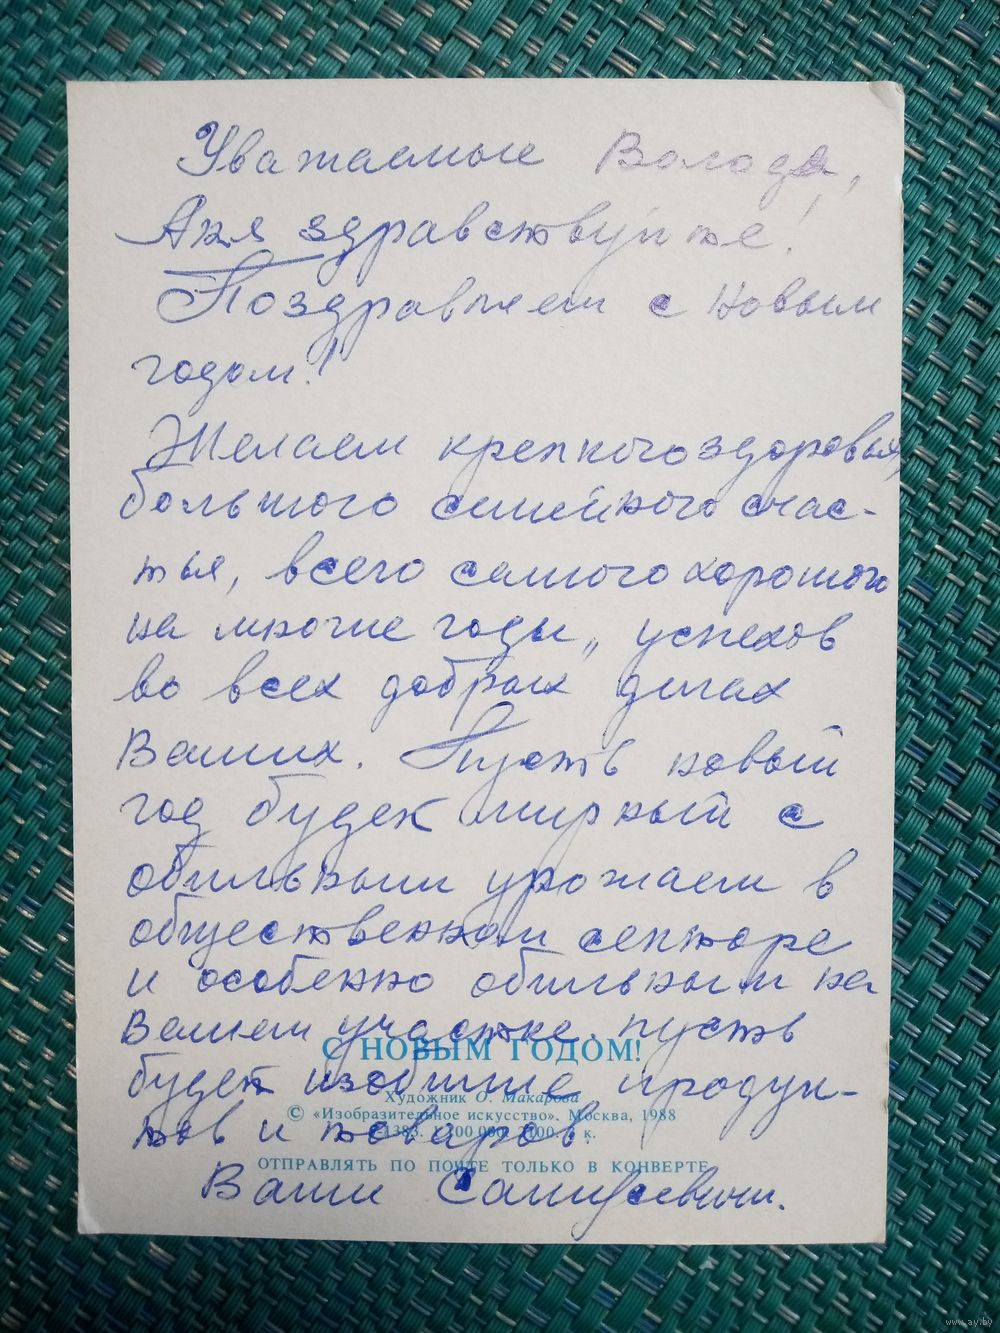 Уважаемые Володя,
Аня здравствуйте!
Поздравляем с новым
годом!
Желаем крепкого здоровья,
большого семейного счас-
тья, всего самого хорошого
на многие годы, успехов
во всех добрых делах
Ваших. Пусть новый
год будет мирный с
обильным урожаем в
общественном секторе
и особенно обильным на
Вашем участке, пусть
С НОВЫМ ГОДОМ!
будет изобилие продук-
Художник О. Макарова
© «Изобразительное искусство». Москва, 1988
тов и товаров.
ОТПРАВЛЯТЬ ПО ПОЧТЕ ТОЛЬКО В КОНВЕРТЕ
Ваши
www.ay.by